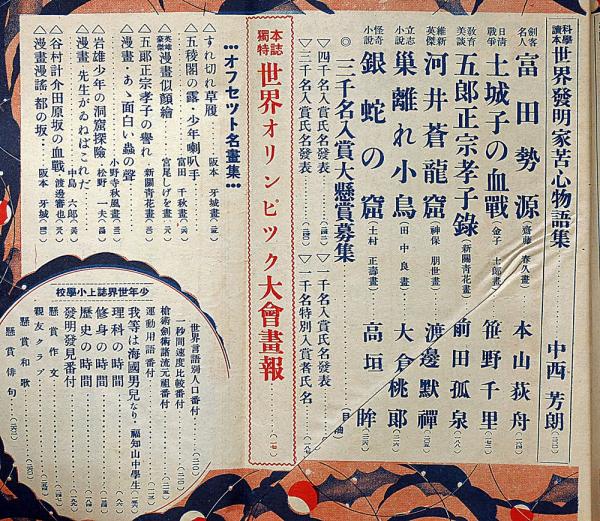 科學讀本 世界發明家苦心物語集 中西芳朗
劍客名人 富田勢源 (齋藤春久畫) 本山荻舟
日清戰爭 土城子の血戰 (金子士郎畫) 笹野千里
敎育美談 五郎正宗孝子錄 (新關靑花畫) 前田孤泉
維新英傑 河井蒼龍窟 (神保朋世畫) 渡邊默禪
立志小說 巢離れ小鳥 (田中良畫) 大倉桃郎
怪奇小說 銀蛇の窟 (土村正壽畫) 高垣眸
◎三千名入賞大懸賞募集
▽四千名入賞氏名發表
▽一千名入賞氏名發表
▽三千名入賞氏名發表
▽一千名特別入賞者氏名
本誌獨特 世界オリンピツク大會畫報
…オフセツト名畫集…
△すれ切れ草履 阪本牙城畫
△五稜閣の露・少年喇叭手 富田千秋畫
英雄豪傑 漫畫似顏繪 宮尾しげを畫
△五郎正宗孝子の譽れ 新關靑花畫
漫畫・あゝ面白い蟲の聲 小野寺秋風畫
△岩雄少年の洞窟探險 松野一夫
漫畫・先生がゐねばこれだ 中島六郎
△谷村計介田原坂の血戰 渡邊審也
△漫畫漫謠・都の坂 阪本牙城
少年世界誌上小學校
世界言語別人口番付
一秒間速度比較番付
槍術劍術諸流元祖番付
運動用語番付
我等は海國男兒なり 福知山中學生
理科の時間
修身の時間
歷史の時間
發明發見番付
懸賞作文
親友クラブ
懸賞和歌
懸賞俳句